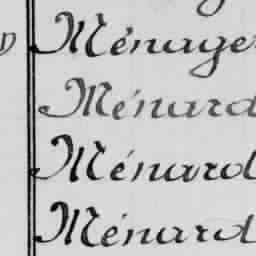 Ménager
Ménard
Ménard
Ménard